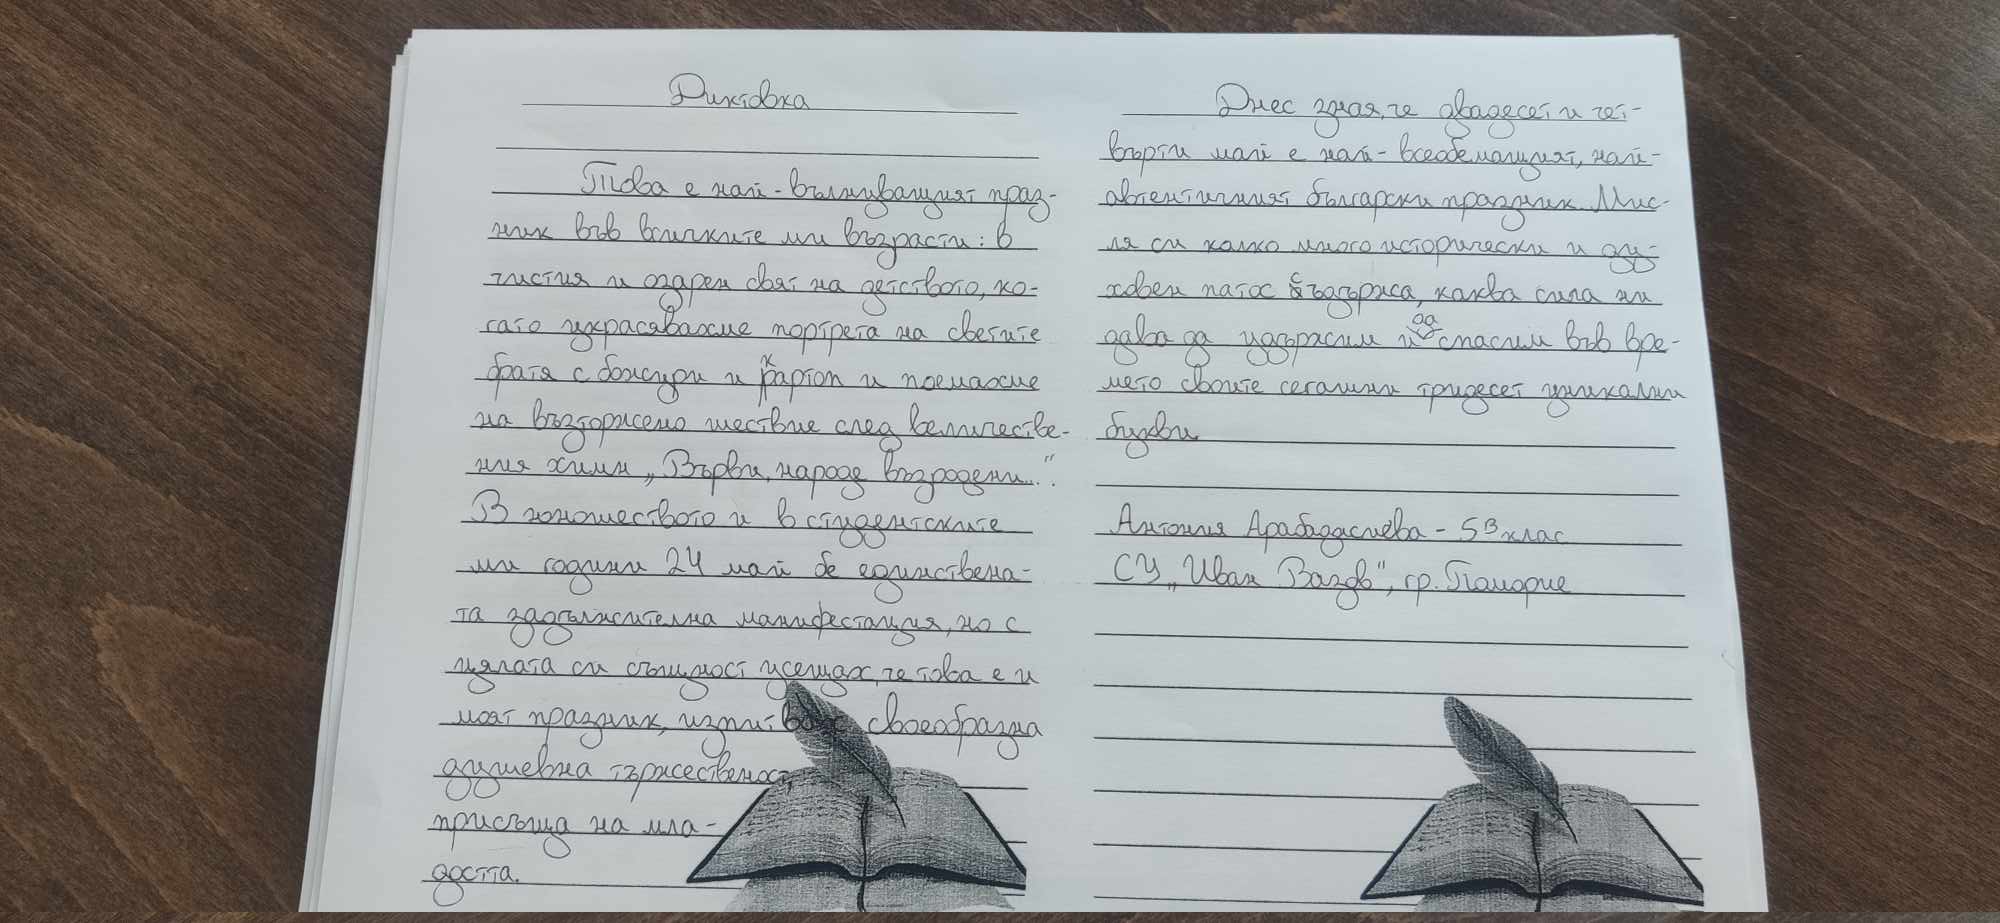 Диктовка
Това е най-вълнуващият праз-
ник във всичките ми възрасти: в
чистия и озарен свят на детството, ко-
гато украсявахме портрета на светите
братя с божури и картоп и поемахме
на възторжено шествие след величестве-
ния химн „Върви, народе възродени...".
В юношеството и в студентските
ми години 24 май бе единствена-
та задължителна манифестация, но с
цялата си същност усещах, че това е и
моят празник, изпитвах своеобразна
душевна тържественост,
присъща на мла-
достта.
Днес зная, че двадесет и чет-
върти май е най-всеобемащият, най-
автентичният български празник. Мис-
ля си колко много исторически и ду-
ховен патос съдържа, каква сила ни
дава да удържим и да спасим във вре-
мето своите сегашни тридесет уникални
букви.
Антония Арабаджиева - 5В клас
СУ „Иван Вазов", гр. Поморие